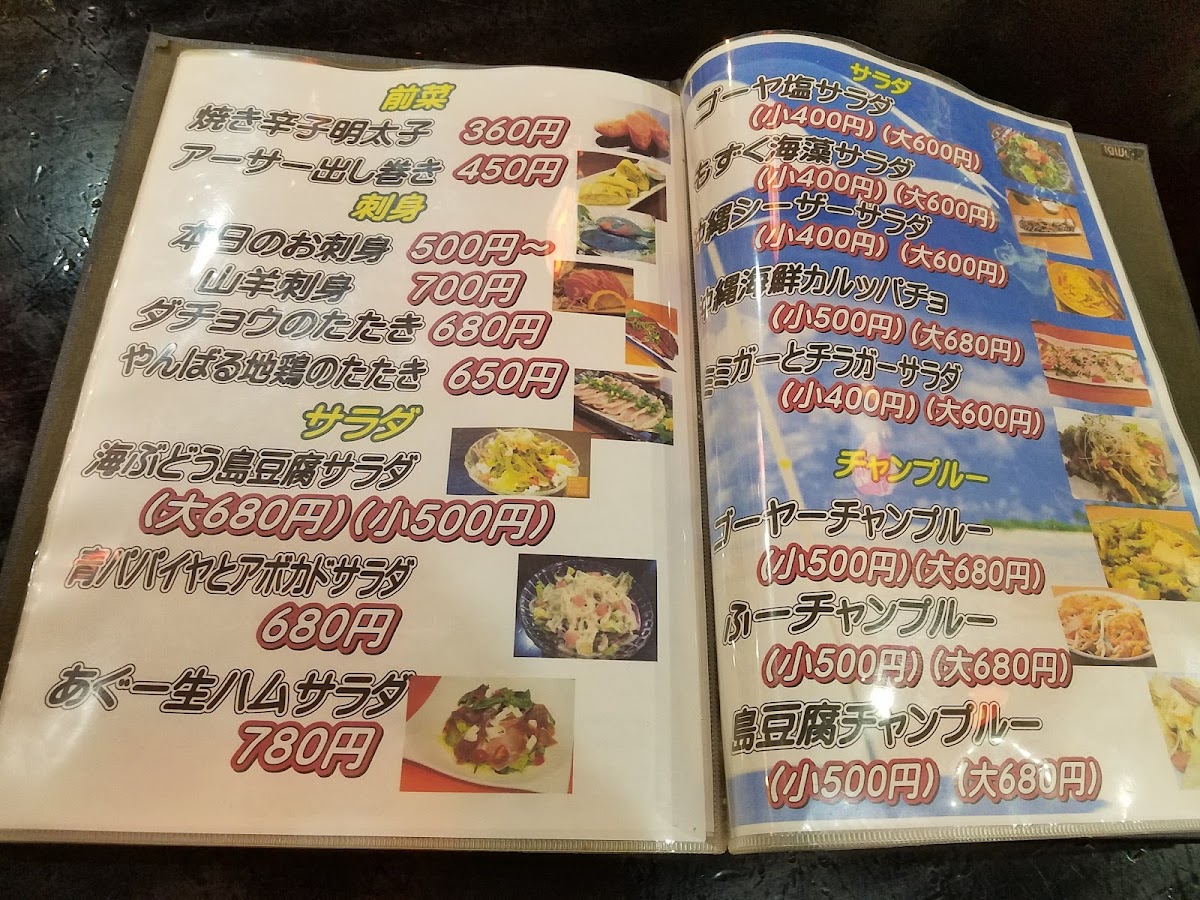 前菜
焼き辛子明太子 360円
アーサー出し巻き 450円
刺身
本日のお刺身 500円～
山羊刺身 700円
ダチョウのたたき 680円
やんばる地鶏のたたき 650円
サラダ
海ぶどう島豆腐サラダ
(大680円)(小500円)
青パパイヤとアボカドサラダ
680円
あぐー生ハムサラダ
780円
サラダ
ゴーヤ塩サラダ
(小400円)(大600円)
もずく海藻サラダ
(小400円)(大600円)
沖縄シーザーサラダ
(小400円)(大600円)
沖縄海鮮カルッパチョ
(小500円)(大680円)
ミミガーとチラガーサラダ
(小400円)(大600円)
チャンプルー
ゴーヤーチャンプルー
(小500円)(大680円)
ふーチャンプルー
(小500円)(大680円)
島豆腐チャンプルー
(小500円)(大680円)